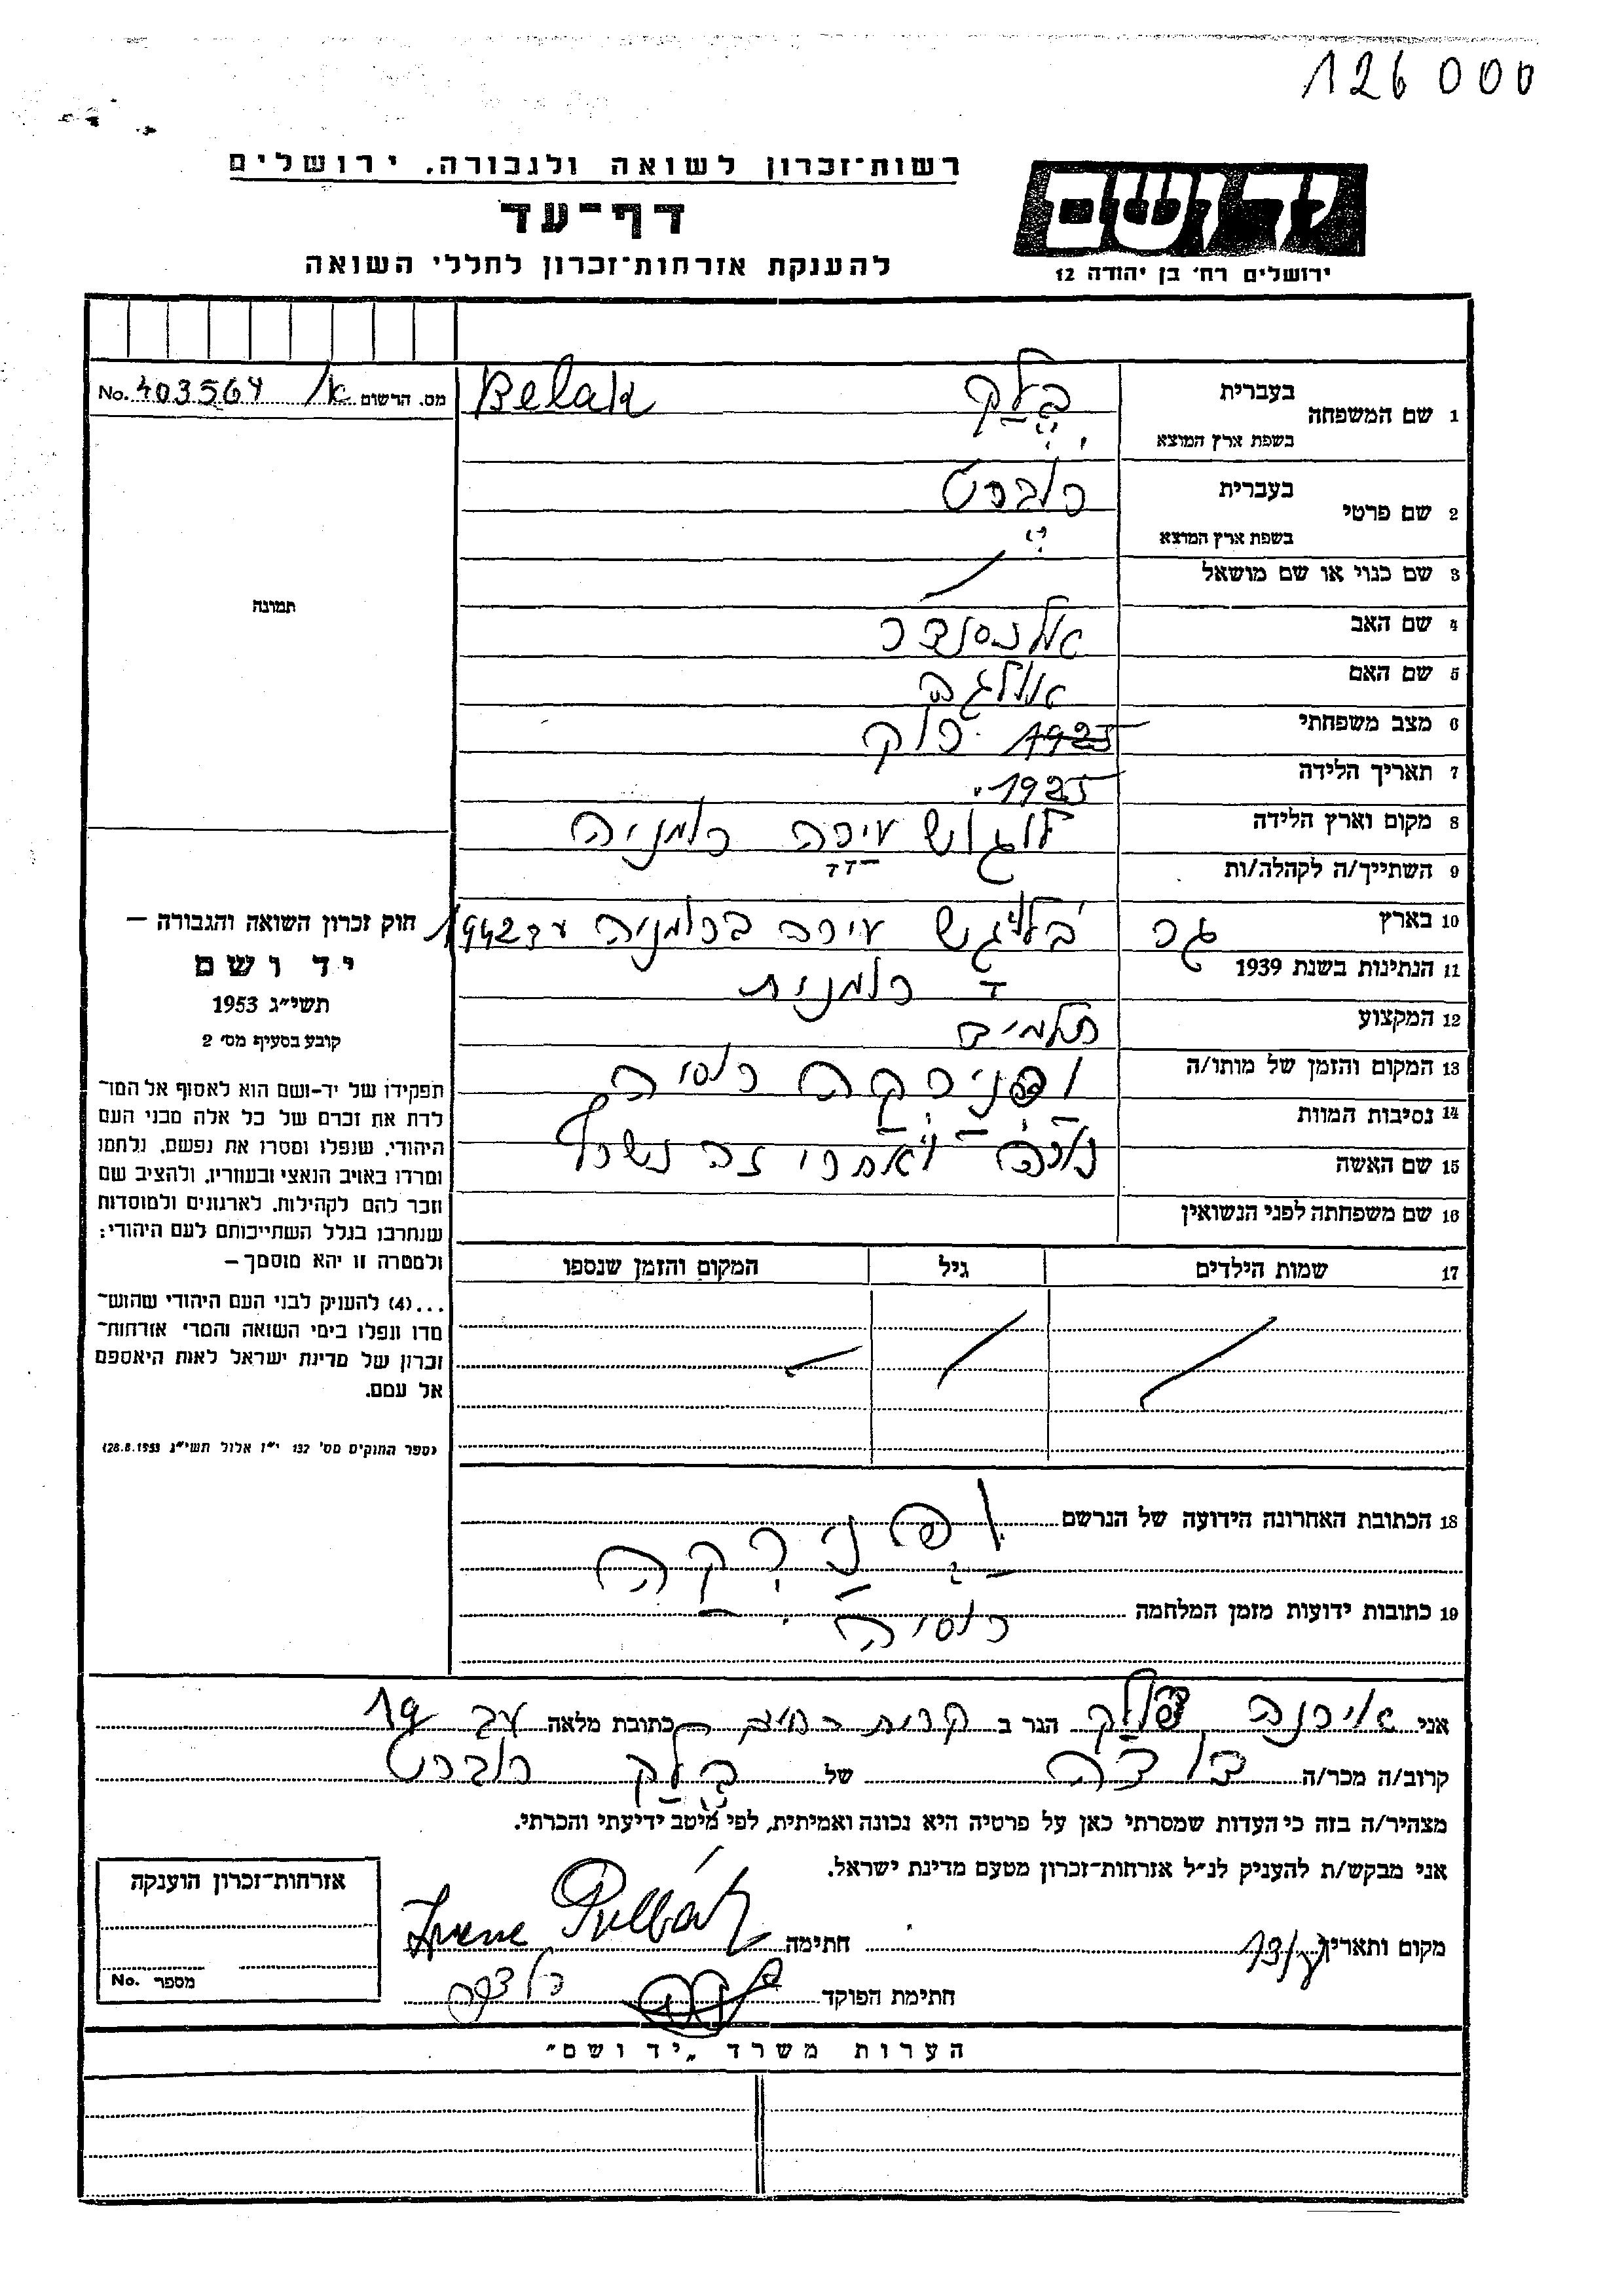 126 000
רשות־זכרון לשואה ולגבורה, ירושלים
ידושם
דף־עד
ירושלים רח' בן יהודה 12
להענקת אזרחות־זכרון לחללי השואה
בעברית
1 שם המשפחה
בשפת ארץ המוצא
בלק
Belak
מס. הרשום No. 403564
בעברית
2 שם פרטי
בשפת ארץ המוצא
רוברט
3 שם כנוי או שם מושאל
תמונה
4 שם האב אלכסנדר
5 שם האם אולגה
6 מצב משפחתי 1925 רוק
7 תאריך הלידה 1925
8 מקום וארץ הלידה לוגוש עירה רומניה
9 השתייך/ה לקהלה/ות
10 בארץ גר בלוגש עירה ברומניה עד 1942
11 הנתינות בשנת 1939 רומנית
12 המקצוע
13 המקום והזמן של מותו/ה ופנירקה רוסיה
14 נסיבות המוות
15 שם האשה נורה ואחרי זה נשרף
16 שם משפחתה לפני הנשואין
17 שמות הילדים גיל המקום והזמן שנספו
חוק זכרון השואה והגבורה –
יד ושם
תשי״ג 1953
קובע בסעיף מס׳ 2
תפקידו של יד-ושם הוא לאסוף אל המו־
לדת את זכרם של כל אלה מבני העם
היהודי, שנפלו ומסרו את נפשם, נלחמו
ומרדו באויב הנאצי ובעוזריו, ולהציב שם
וזכר להם לקהילות, לארגונים ולמוסדות
שנחרבו בגלל השתייכותם לעם היהודי;
ולמטרה זו יהא מוסמך –
...(4) להעניק לבני העם היהודי שהוש־
מדו ונפלו בימי השואה והמרי אזרחות־
זכרון של מדינת ישראל לאות היאספם
אל עמם.
(ספר החוקים מס׳ 132 י״ז אלול תשי״ג 28.8.1953)
18 הכתובת האחרונה הידועה של הנרשם
ופנירקה
19 כתובות ידועות מזמן המלחמה רוסיה
אני אירנה פולק הגר ב קרית כתובת מלאה 19
קרוב/ה מכר/ה דודה של בלק רוברט
מצהיר/ה בזה כי העדות שמסרתי כאן על פרטיה היא נכונה ואמיתית, לפי מיטב ידיעתי והכרתי.
אני מבקש/ת להעניק לנ״ל אזרחות־זכרון מטעם מדינת ישראל.
מקום ותאריך חתימה Irene
חתימת הפוקד
אזרחות־זכרון הוענקה
מספר No.
הערות משרד „יד ושם״